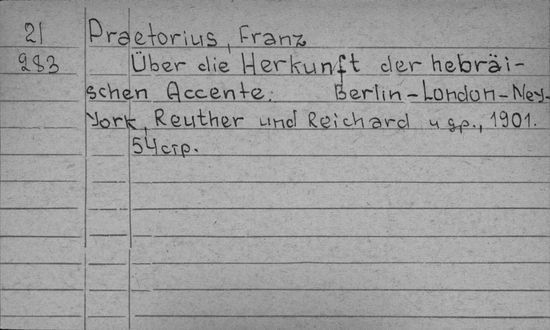 21 Praetorius, Franz
283 Über die Herkunft der hebräi-
schen Accente. Berlin-London-Ney-
York, Reuther und Reichard и др., 1901.
54 стр.